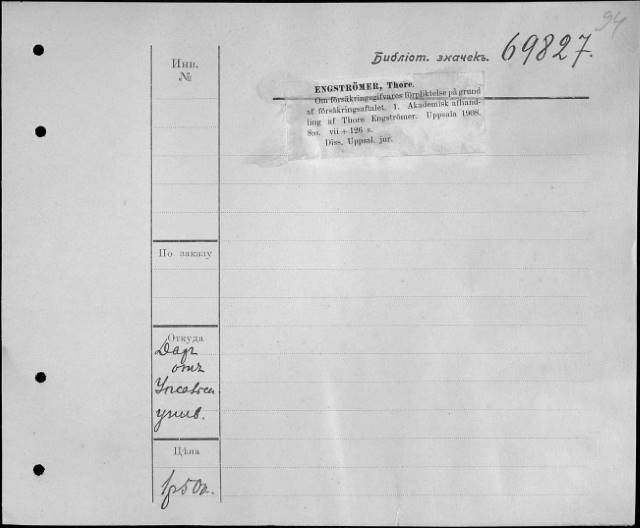 94
Инв.
№
Библіот. значекъ. 69827.
ENGSTRÖMER, Thore.
Om försäkringsgifvares förpliktelse på grund
af försäkringsaftalet. 1. Akademisk afhand-
ling af Thore Engströmer. Uppsala 1908.
8:o. vii + 126 s.
Diss. Uppsal. jur.
По заказу
Откуда
Дар
отъ
Упсальск.
унив.
Цѣна
1р50к.